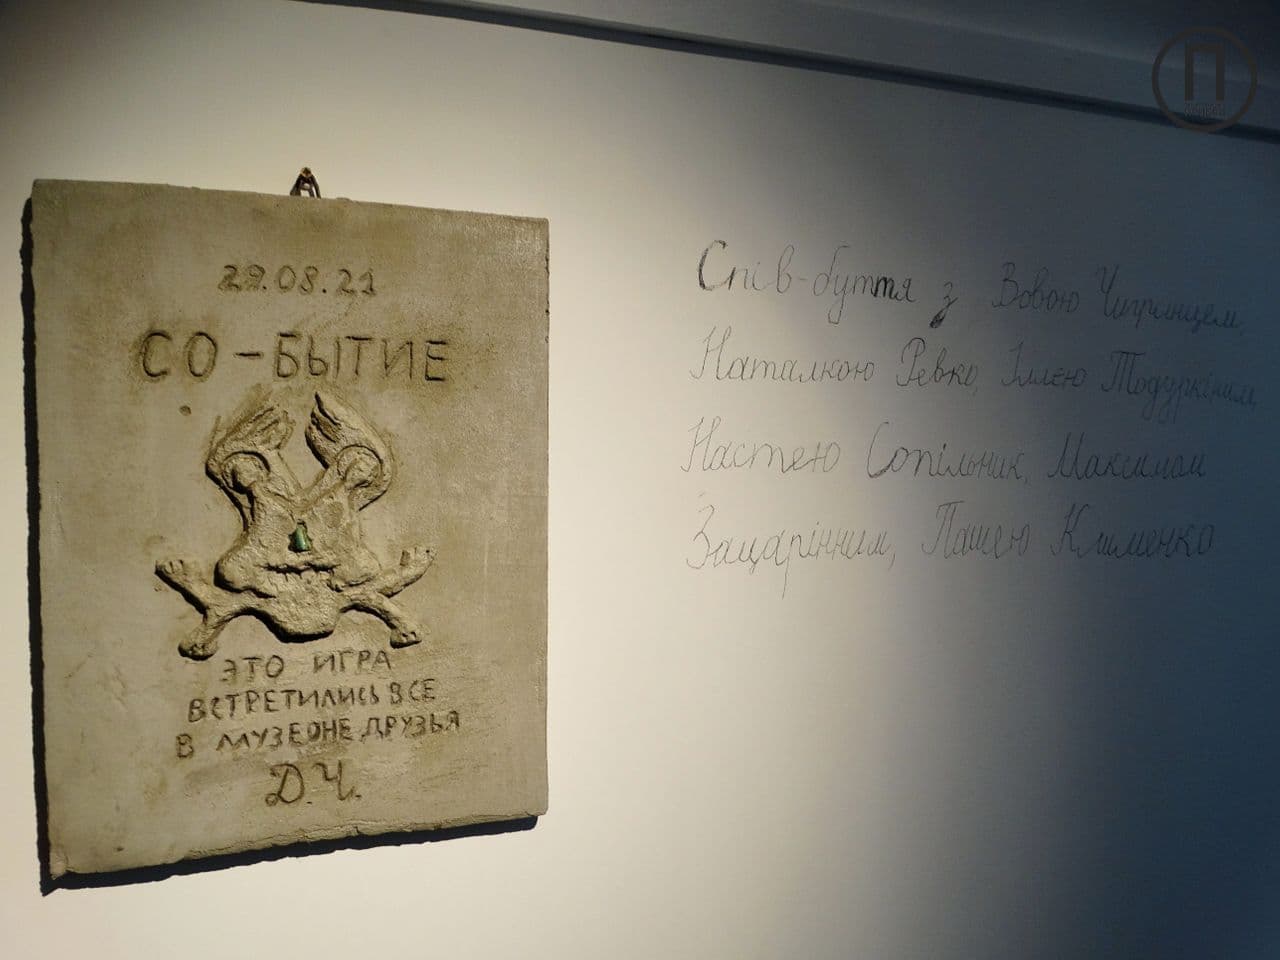 29.08.21
СО-БЫТИЕ
ЭТО ИГРА
ВСТРЕТИЛИСЬ ВСЕ
В МУЗЕОНЕ ДРУЗЬЯ
Д.Ч.
Спів-буття з Вовою Чигринцем,
Наталкою Ревко, Іллєю Тодуркіним,
Настею Сопільник, Максимом
Зацарінним, Пашею Клименко
П